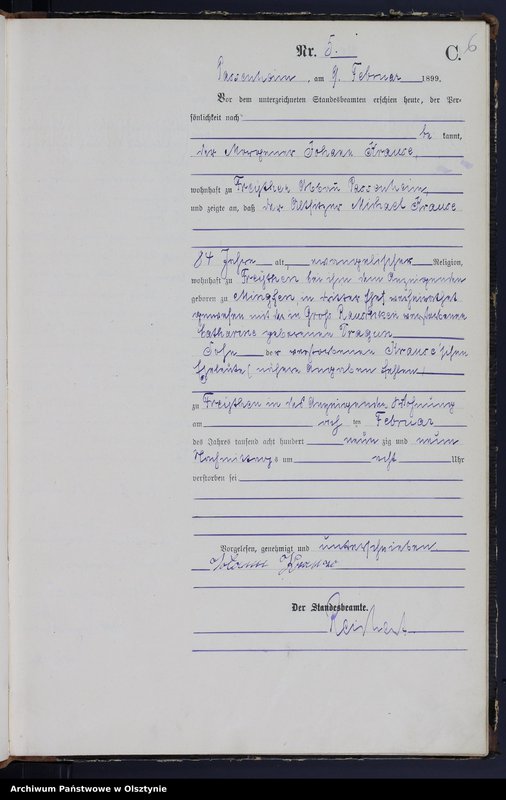 Nr. 5.
C. 6
Passenheim, am 9. Februar 1899.
Vor dem unterzeichneten Standesbeamten erschien heute, der Per-
sönlichkeit nach
be kannt,
der Johann Krause,
wohnhaft zu Passenheim,
und zeigte an, daß der Altsitzer Michael Krause
84 Jahre alt, evangelischer Religion,
wohnhaft zu bei ihm dem Anzeigenden
geboren zu in dritter Ehe verheirathet
gewesen mit der in Groß verstorbenen
Catharine geborenen
Sohn der verstorbenen Krause'schen
Eheleute (nähere Angaben fehlen)
zu in des Anzeigenden Wohnung
am ten Februar
des Jahres tausend acht hundert neun zig und neun
Nachmittags um acht Uhr
verstorben sei
Vorgelesen, genehmigt und unterschrieben
Krause
Der Standesbeamte.
Archiwum Państwowe w Olsztynie